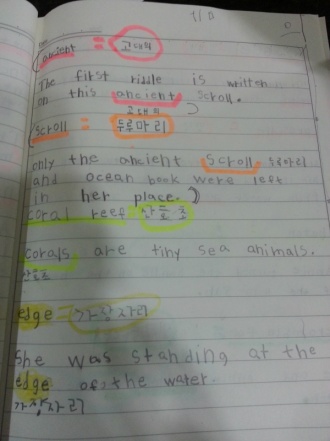 ancient = 고대의
The first riddle is written
on this ancient scroll.
고대의
scroll = 두루마리
only the ancient scroll 두루마리
and ocean book were left
in her place.
coral reef = 산호초
corals are tiny sea animals.
산호초
edge = 가장자리
She was standing at the
edge of the water
가장자리